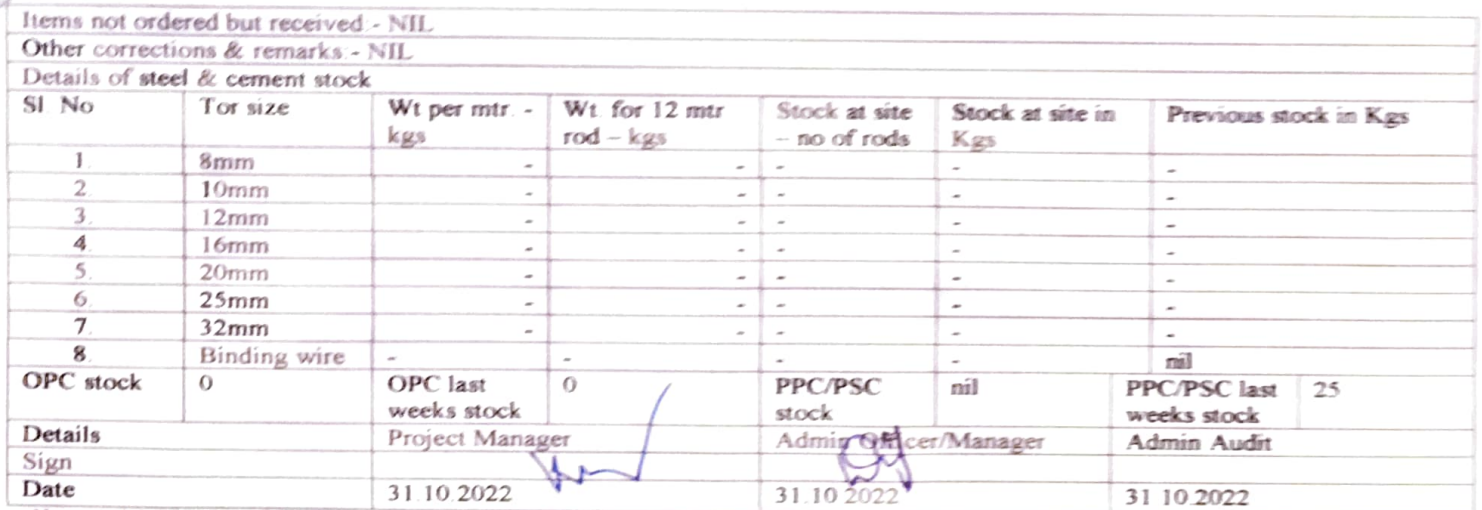 Items not ordered but received - NIL
Other corrections & remarks - NIL
Details of steel & cement stock
Sl No Tor size Wt per mtr. - kgs Wt. for 12 mtr rod – kgs Stock at site – no of rods Stock at site in Kgs Previous stock in Kgs
1. 8mm - - - - -
2. 10mm - - - - -
3. 12mm - - - - -
4. 16mm - - - - -
5. 20mm - - - - -
6. 25mm - - - - -
7. 32mm - - - - -
8. Binding wire - - - - nil
OPC stock 0 OPC last weeks stock 0 PPC/PSC stock nil PPC/PSC last weeks stock 25
Details Project Manager Admin Officer/Manager Admin Audit
Sign
Date 31.10.2022 31.10.2022 31.10.2022